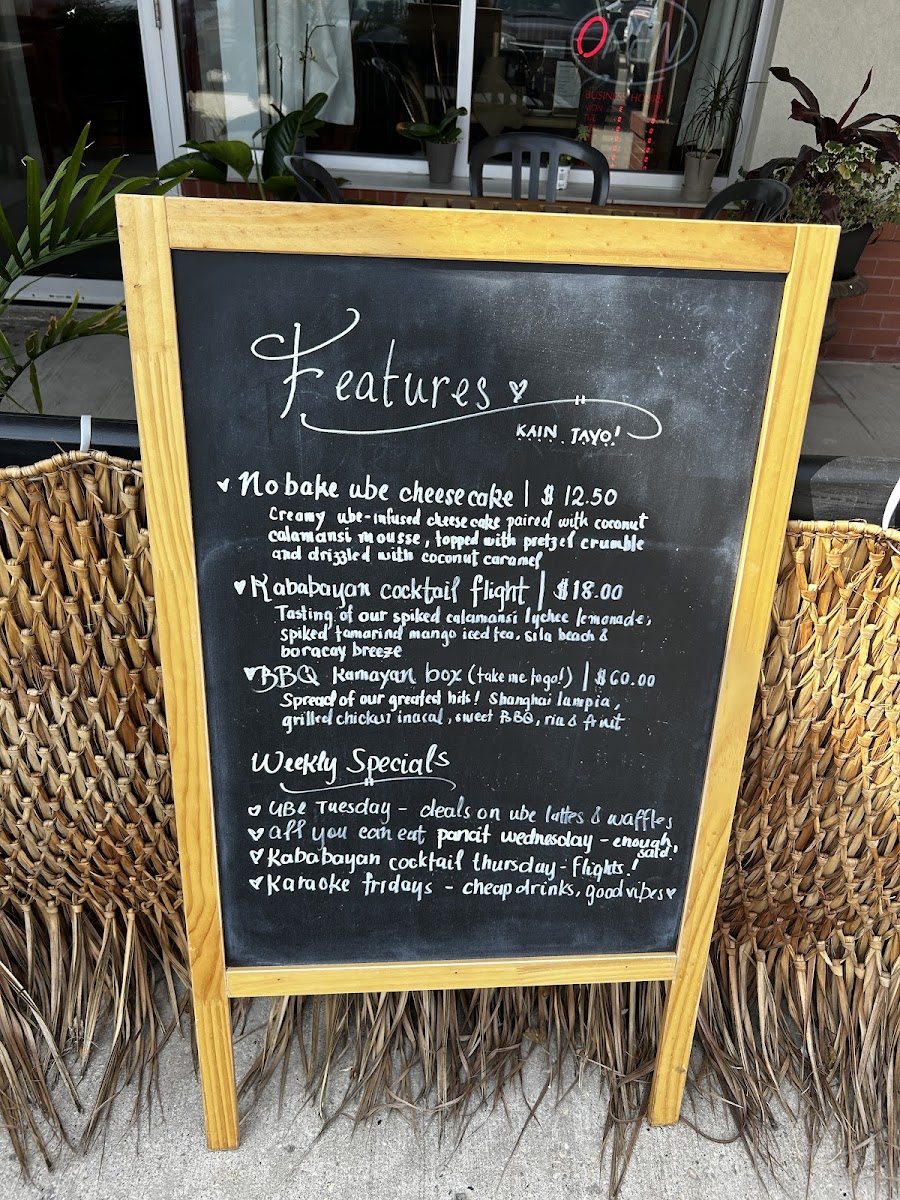 OPEN
BUSINESS HOURS
MON
TUE
Features
KAIN TAYO!
No bake ube cheesecake | $ 12.50
Creamy ube-infused cheesecake paired with coconut
calamansi mousse, topped with pretzel crumble
and drizzled with coconut caramel
Kababayan cocktail flight | $18.00
Tasting of our spiked calamansi lychee lemonade,
spiked tamarind mango iced tea, sila beach &
boracay breeze
BBQ Kamayan box (take me togo!) | $60.00
Spread of our greatest hits! Shanghai lumpia,
grilled chicken inasal, sweet BBQ, rice & fruit
Weekly Specials
UBE Tuesday - deals on ube lattes & waffles
all you can eat pancit wednesday - enough
said!
Kababayan cocktail thursday - flights!
Karaoke fridays - cheap drinks, good vibes